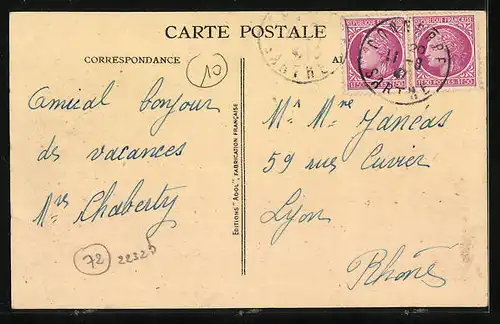 CARTE POSTALE
CORRESPONDANCE
10
Amical bonjour
de vacances
Mrs Chaberty
72
22320
ÉDITIONS "ADOL", FABRICATION FRANÇAISE
RÉPUBLIQUE FRANÇAISE
RÉPUBLIQUE FRANÇAISE
SARTHE
CONNERRE
SARTHE
Mr Mme Jancas
59 rue Cuvier
Lyon
Rhône